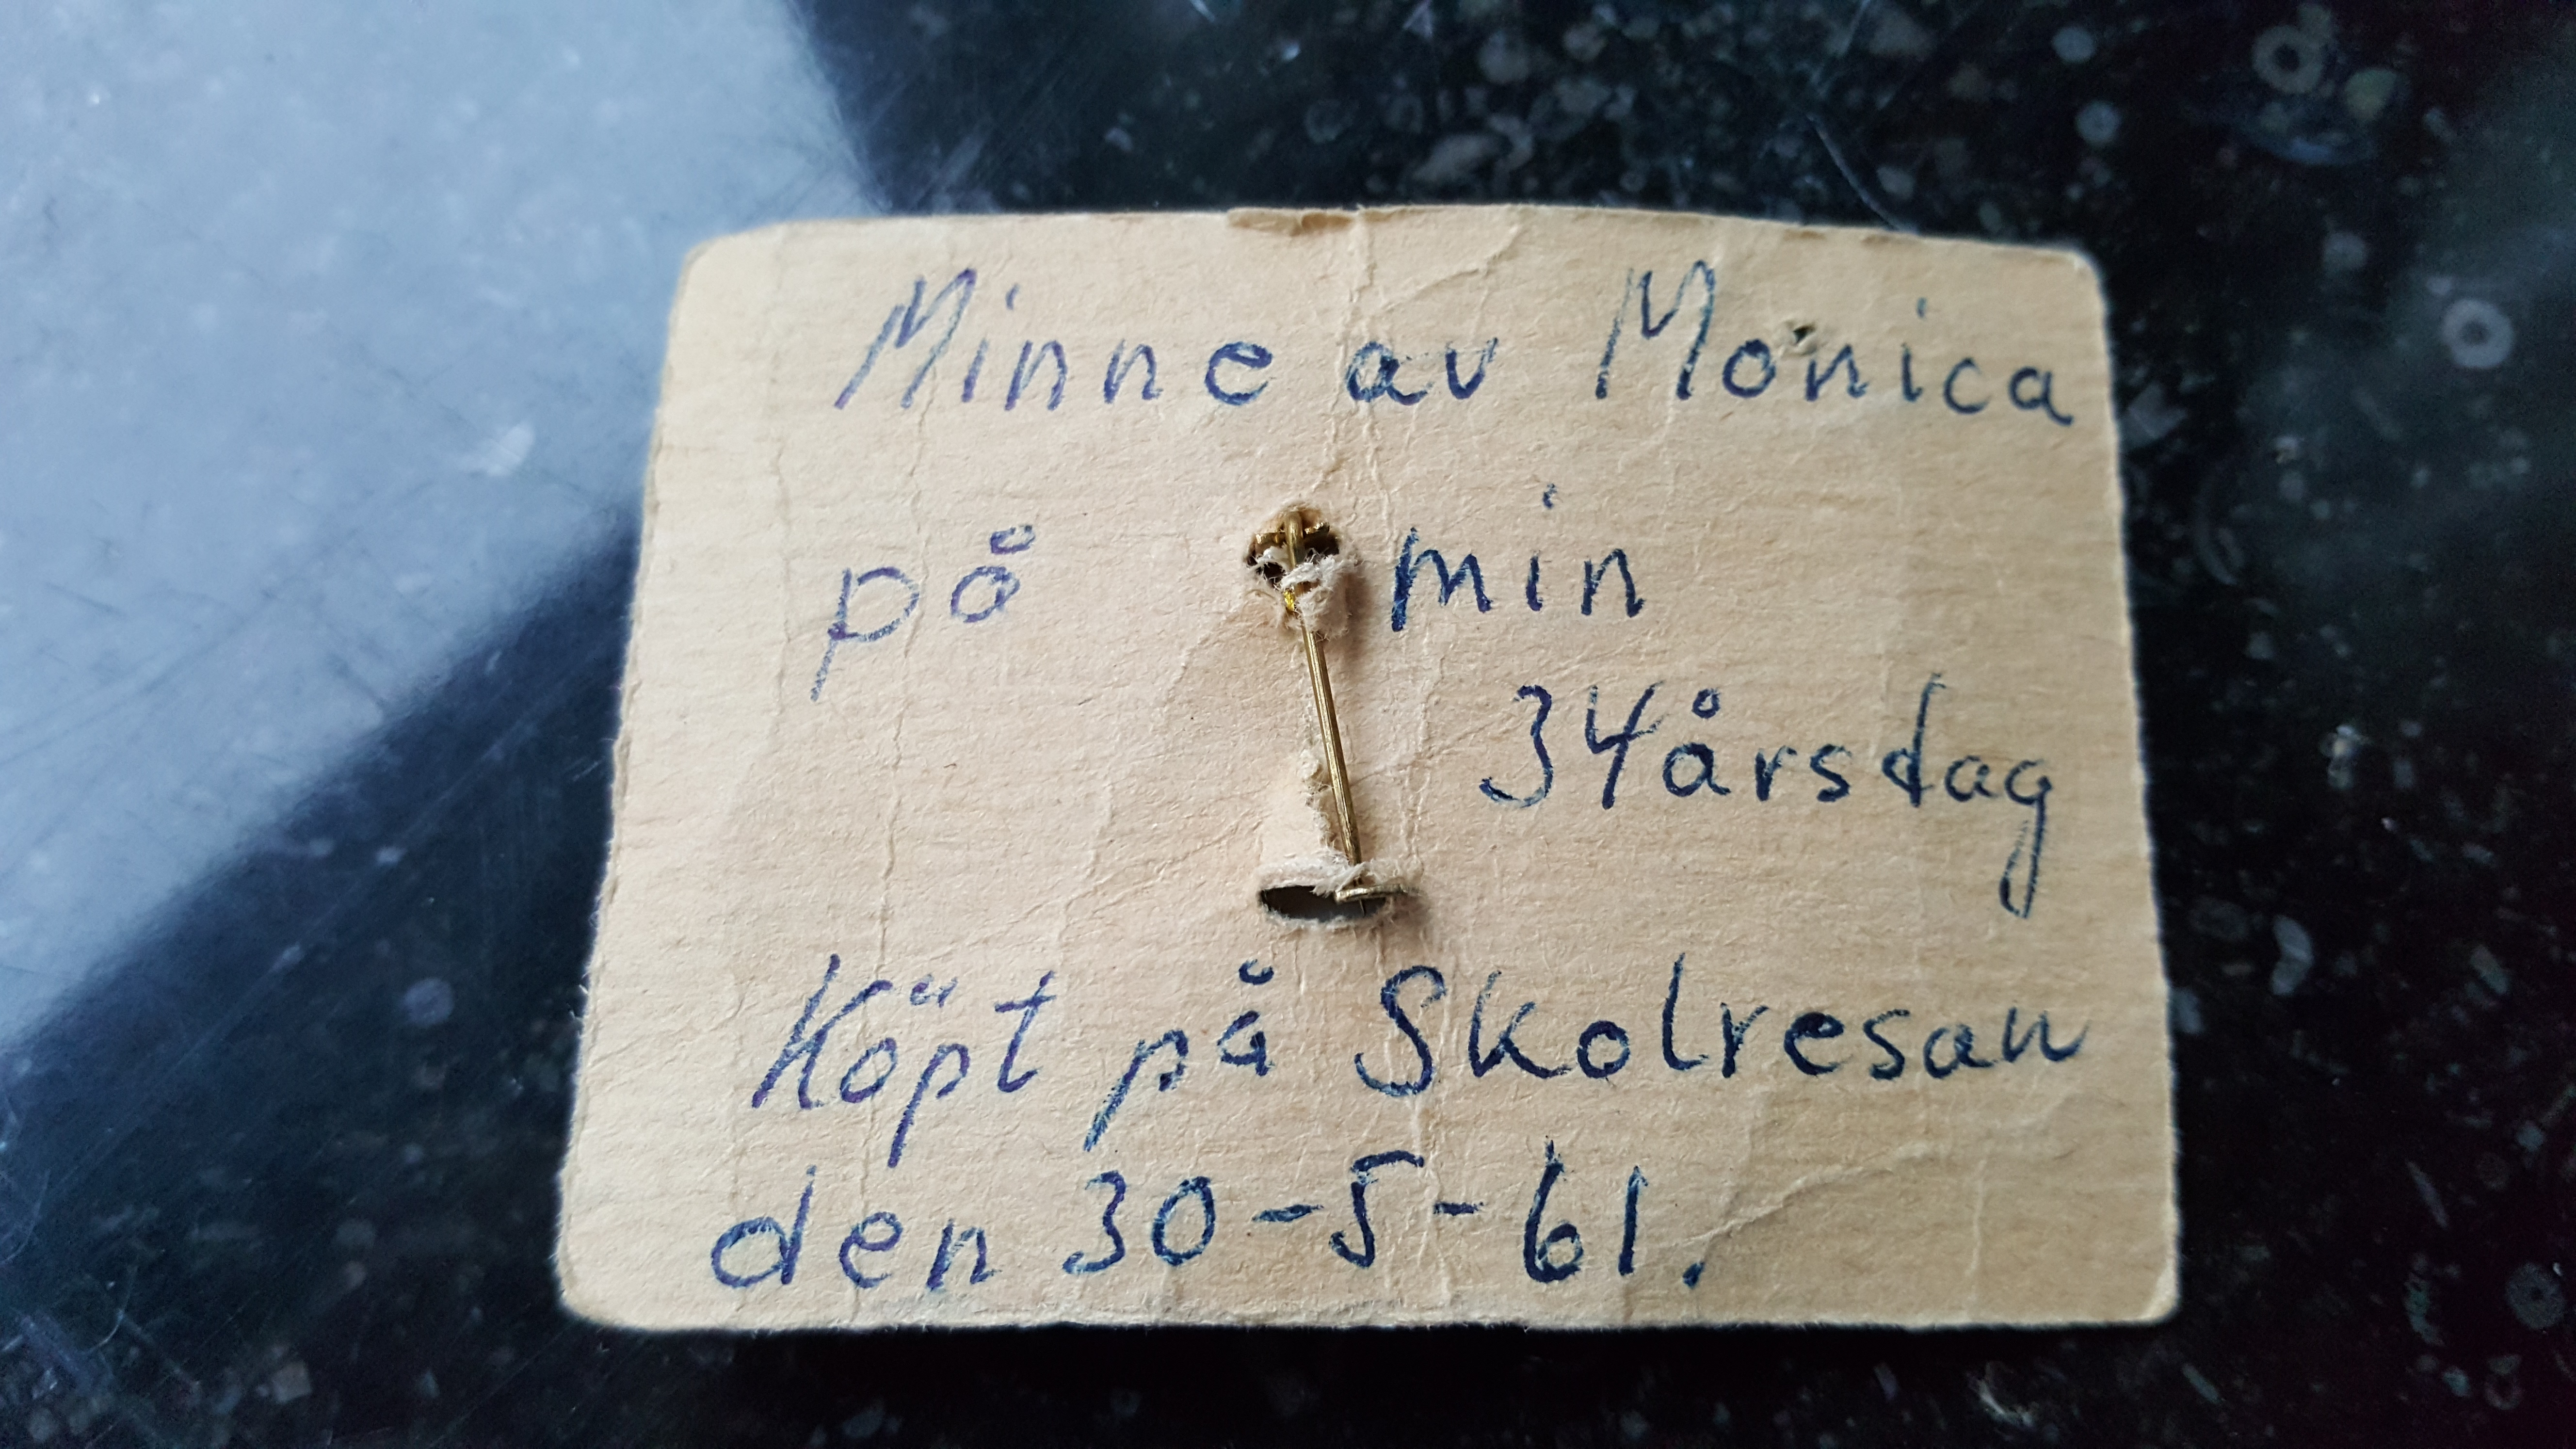 Minne av Monica
på min
34årsdag
Köpt på Skolresan
den 30-5-61.